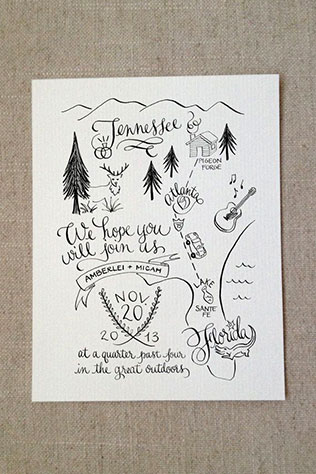 Tennessee
PIGEON
FORGE
Atlanta
We hope you
will join us
AMBERLEI + MICAH
NOV.
20
20 13
SANTE
FE
Florida
at a quarter past four
in the great outdoors